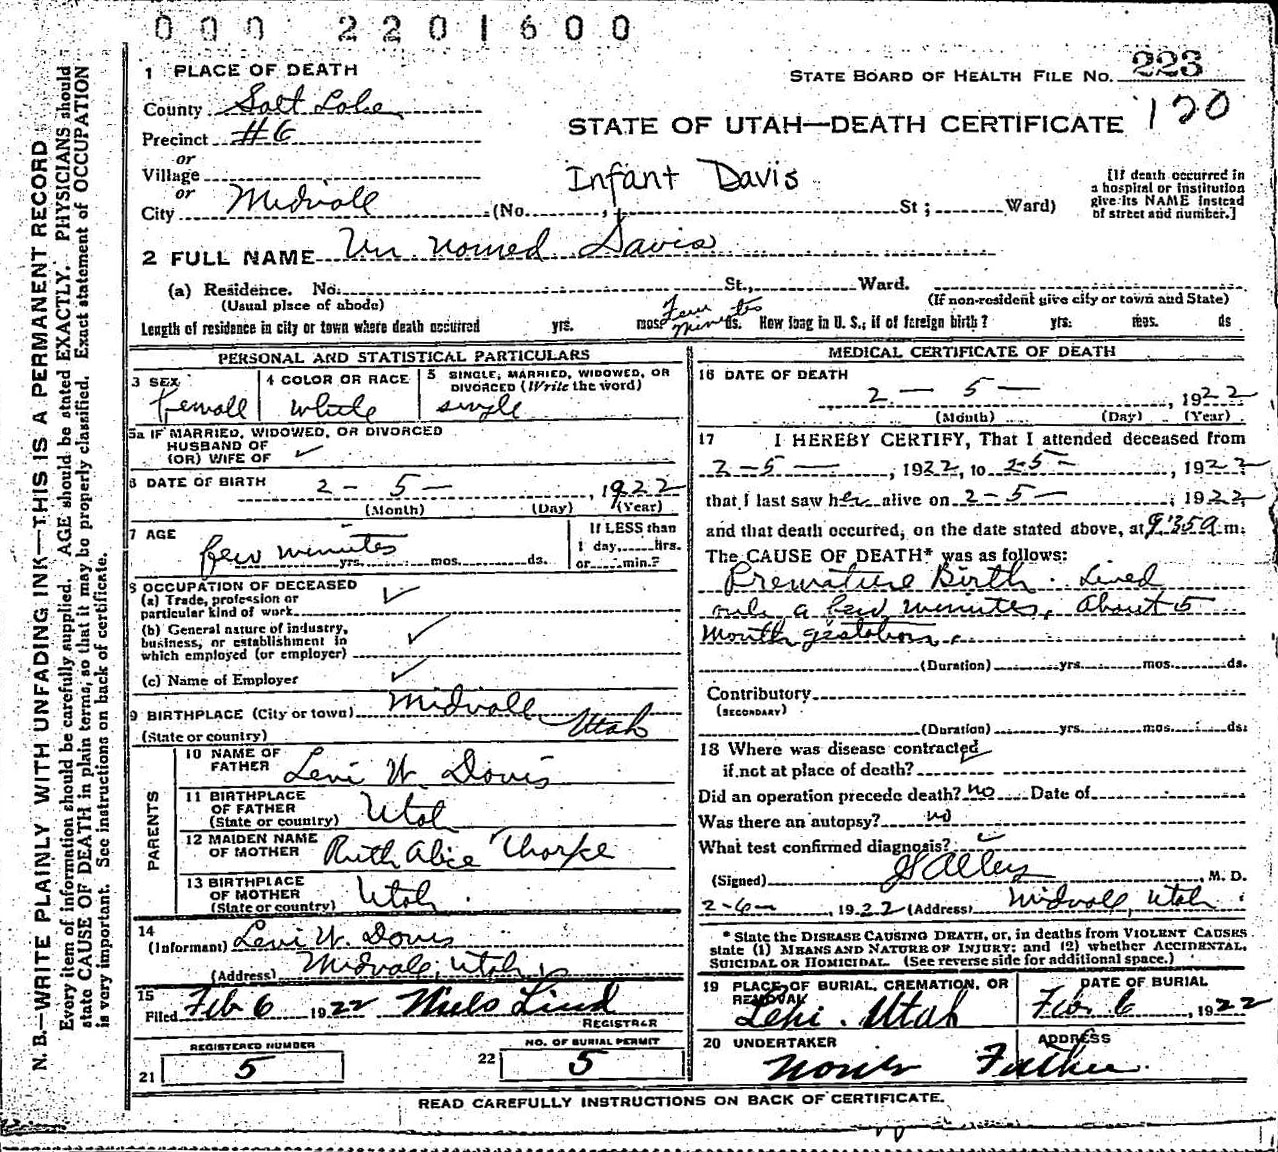 000 2201600
1 PLACE OF DEATH
STATE BOARD OF HEALTH FILE NO. 223
County Salt Lake
120
Precinct #6
STATE OF UTAH—DEATH CERTIFICATE
or
Village
Infant Davis
[If death occurred in a hospital or institution give its NAME instead of street and number.]
or
City Midvale (No. , St; Ward)
2 FULL NAME Un named Davis
(a) Residence. No. St., Ward.
(Usual place of abode) (If non-resident give city or town and State)
Length of residence in city or town where death occurred yrs. mos. Few Minutes ds. How long in U. S.; if of foreign birth? yrs. mos. ds
PERSONAL AND STATISTICAL PARTICULARS
3 SEX Female
4 COLOR OR RACE White
5 SINGLE, MARRIED, WIDOWED, OR DIVORCED (Write the word) single
5a IF MARRIED, WIDOWED, OR DIVORCED
HUSBAND OF
(OR) WIFE OF
6 DATE OF BIRTH 2 — 5 — , 1922
(Month) (Day) (Year)
7 AGE few minutes yrs. mos. ds.
If LESS than
1 day, hrs.
or min.?
8 OCCUPATION OF DECEASED
(a) Trade, profession or
particular kind of work
(b) General nature of industry,
business, or establishment in
which employed (or employer)
(c) Name of Employer
9 BIRTHPLACE (City or town) Midvale
(State or country) Utah
PARENTS
10 NAME OF FATHER Levi W Davis
11 BIRTHPLACE OF FATHER (State or country) Utah
12 MAIDEN NAME OF MOTHER Ruth Alice Thorpe
13 BIRTHPLACE OF MOTHER (State or country) Utah
14
(Informant) Levi W. Davis
(Address) Midvale, Utah
15
Filed Feb 6 1922 Niels Lind
REGISTRAR
REGISTERED NUMBER
21 5
NO. OF BURIAL PERMIT
22 5
MEDICAL CERTIFICATE OF DEATH
16 DATE OF DEATH
2 — 5 — , 1922
(Month) (Day) (Year)
17 I HEREBY CERTIFY, That I attended deceased from
2-5— , 1922, to 2-5- , 1922
that I last saw her alive on 2-5— , 1922,
and that death occurred, on the date stated above, at 9:35a m.
The CAUSE OF DEATH* was as follows:
Premature Birth. Lived
only a few minutes, about 5
month gestation.
(Duration) yrs. mos. ds.
Contributory
(SECONDARY)
(Duration) yrs. mos. ds.
18 Where was disease contracted
if not at place of death?
Did an operation precede death? no Date of
Was there an autopsy? no
What test confirmed diagnosis?
(Signed) Alley , M. D.
2-6— , 1922 (Address) Midvale, Utah
* State the DISEASE CAUSING DEATH, or, in deaths from VIOLENT CAUSES
state (1) MEANS AND NATURE OF INJURY; and (2) whether ACCIDENTAL,
SUICIDAL OR HOMICIDAL. (See reverse side for additional space.)
19 PLACE OF BURIAL, CREMATION, OR REMOVAL
Lehi. Utah
DATE OF BURIAL
Feb. 6 , 1922
20 UNDERTAKER
None
ADDRESS
Father
READ CAREFULLY INSTRUCTIONS ON BACK OF CERTIFICATE.
N. B.—WRITE PLAINLY WITH UNFADING INK—THIS IS A PERMANENT RECORD
Every item of information should be carefully supplied. AGE should be stated EXACTLY. PHYSICIANS should
state CAUSE OF DEATH in plain terms, so that it may be properly classified. Exact statement of OCCUPATION
is very important. See instructions on back of certificate.